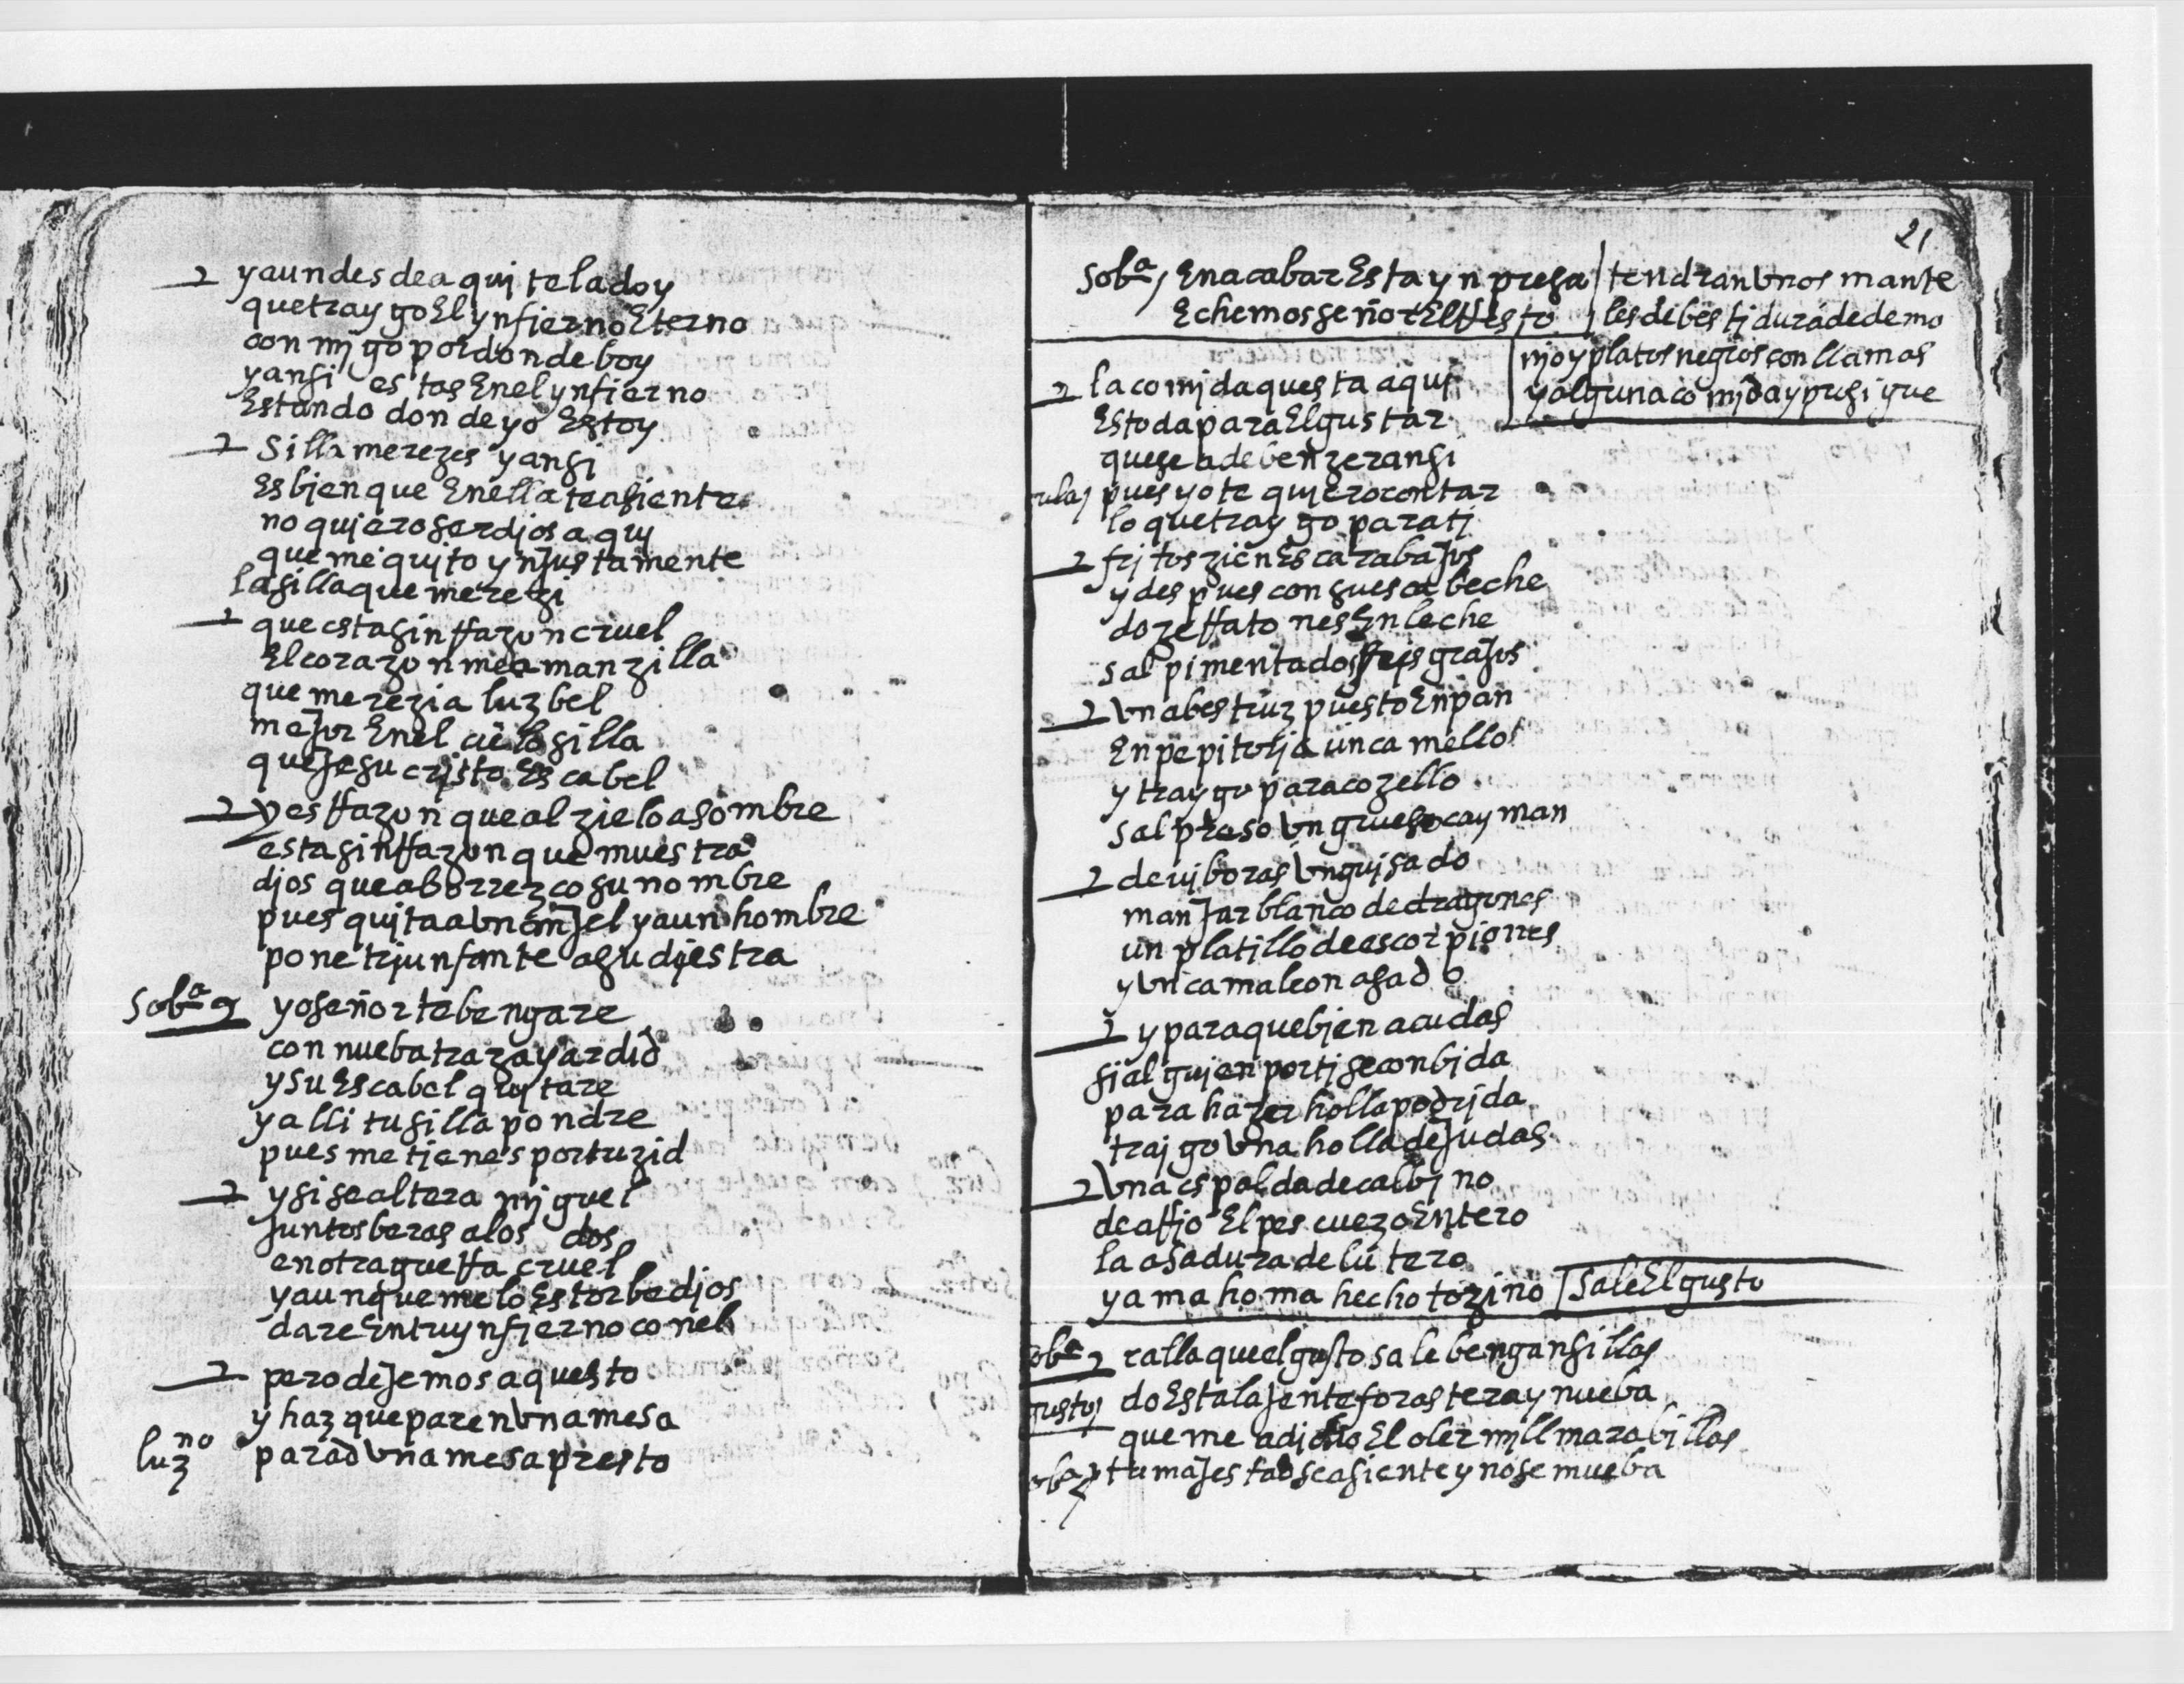 y aun desde aqui te la doy
que traygo El ynfierno Eterno
con migo por donde boy
y ansi estas En el ynfierno
Estando donde yo Estoy
Silla merezes y ansi
Es bien que En ella te asiente
no quiero ser dios aqui
que me quito ynJustamente
la silla que merezi
que esta sin rrazon cruel
El corazon me amanzilla
que merezia luzbel
meJor En el cielo silla
que Jesucristo Escabel
y es rrazon que al zielo asombre
esta sin rrazon que muestra
dios que aborrezco su nombre
pues quita a Un anJel y a un hombre
pone triunfante a su diestra
Soba yo señor te bengare
con nueba traza y ardid
y su Escabel quitare
y alli tu silla pondre
pues me tienes por tu zid
y si se altera miguel
Juntos beras a los dos
en otra guerra cruel
y aunque me lo Estorbe dios
dare En tu ynfierno con el
pero deJemos aquesto
y haz que paren Una mesa
luzno parad Una mesa presto
21
Soba En acabar Esta ynpresa
Echemos señor El rresto
tendran Unos mante
les de bestidura de demo
nio y platos negros con llamas
y alguna comida y prosigue
la comida questa aqui
Es toda para El gustar
que se a de benzer ansi
pues yo te quiero contar
lo que traygo para ti
fritos zien EscarabaJos
y despues con su escabeche
doze rratones En leche
salpimentados seis graJos
Un abestruz puesto En pan
En pepitoria un camello
y traygo para cozello
salpreso Un grueso cayman
de viboras Un guisado
manJar blanco de dragones
un platillo de escorpiones
y Un camaleon asado
y para que bien acudas
si alguien por ti se conbida
para hazer holla podrida
traigo Una holla de Judas
Una espalda de calbino
de arrio El pescuezo Entero
la asadura de lutero
y a mahoma hecho tozino
Sale El gusto
oba calla que el gusto sale bengan sillas
gusto do Esta la Jente forastera y nueba
que me a dicho El oler mill marabillas
oba tu maJestad se asiente y no se mueba